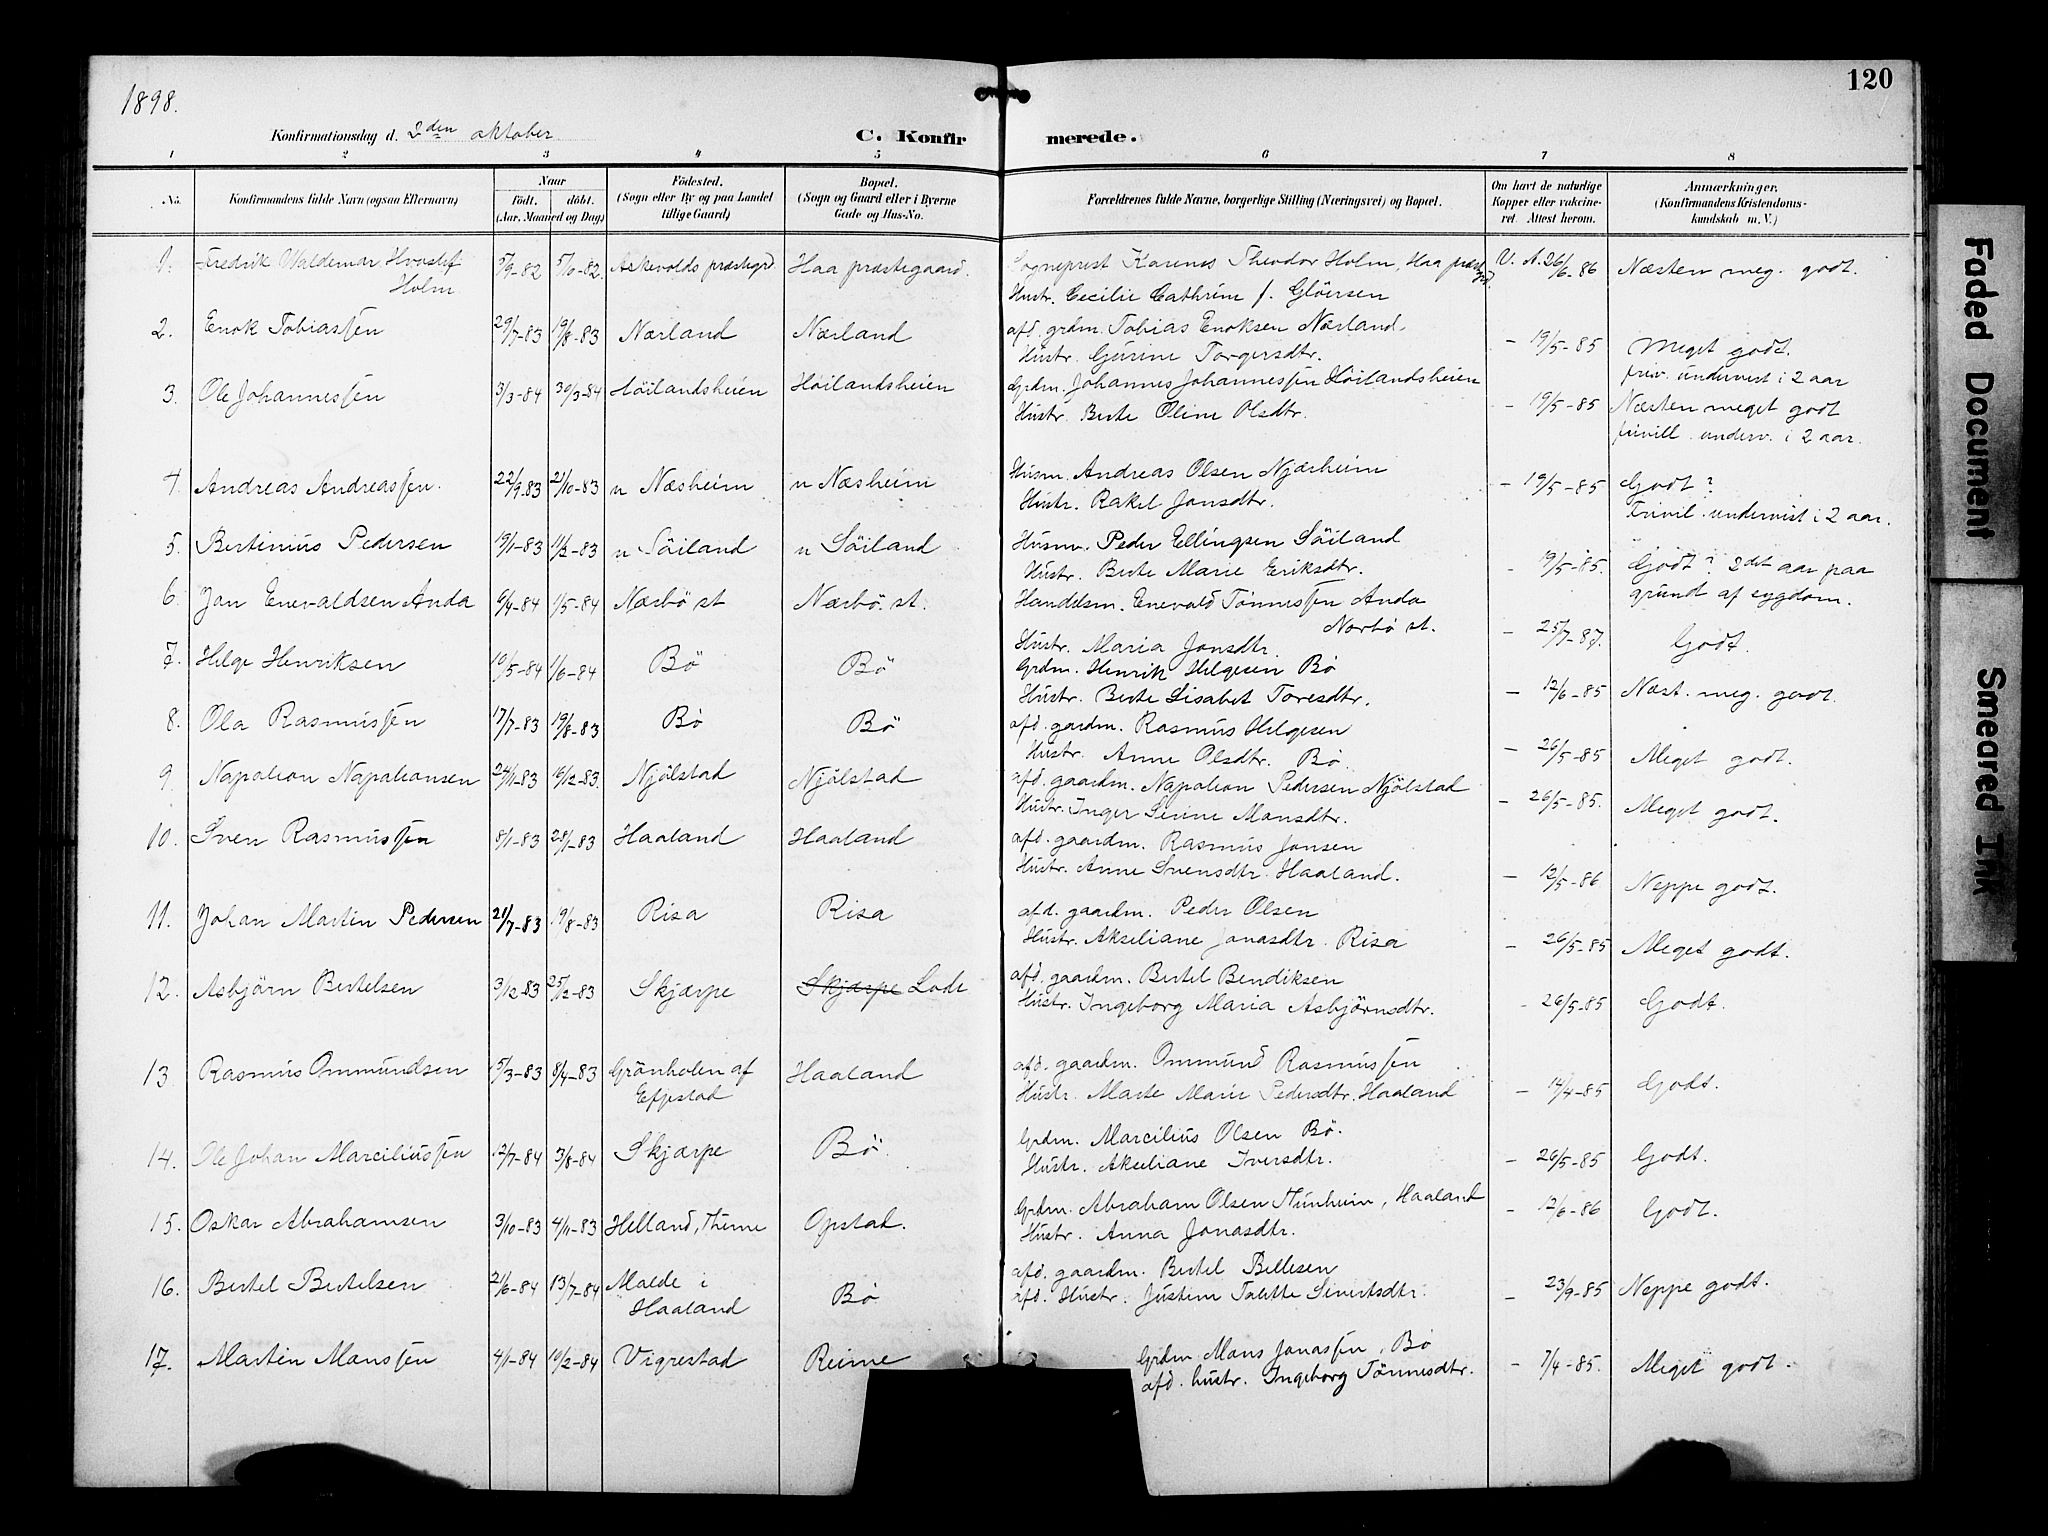 1898.
120
Konfirmationsdag d. 2den oktober
C. Konfirmerede.
1 2 3 4 5 6 7 8
No.
Konfirmandens fulde Navn (ogsaa Efternavn)
Naar
født. døbt.
(Aar, Maaned og Dag)
Fødested.
(Sogn eller By og paa Landet
tillige Gaard)
Bopæl.
(Sogn og Gaard eller i Byerne
Gade og Hus-No.
Forældrenes fulde Navne, borgerlige Stilling (Næringsvei) og Bopæl.
Om havt de naturlige
Kopper eller vakcine-
ret. Attest herom.
Anmærkninger.
(Konfirmandens Kristendoms-
kundskab m. V.)
1. Fredrik Waldemar Hvoslef 5/9-82 5/10-82 Askevolds præstegrd Haa præstegaard. Sogneprest Karenus Theodor Holm, Haa præstgrd. V. A. 26/6-86 Næsten meg. godt.
Holm Hustr. Cecilie Cathrine f. Glöersen
2. Enok Tobiassen 29/7-83 19/8-83 Nærland Nærland afd. grdm. Tobias Enoksen Nærland.
Hustr. Gurine Torgersdtr. - 19/5-85 Meget godt.
friv. undervist i 2 aar
3. Ole Johannessen 3/3-84 30/3-84 Höilandsheien Höilandsheien Grdm. Johannes Johannessen Höilandsheien
Hustr. Berte Oline Olsdtr. - 19/5-85 Næsten meget godt
frivill. underv. i 2 aar.
4. Andreas Andreassen. 22/9-83 21/10-83 n Næsheim n Næsheim Husm. Andreas Olsen Njærheim
Hustr. Rakel Jonsdtr. - 19/5-85 Godt?
Frivil. undervist i 2 aar.
5. Bertinius Pedersen 19/1-83 11/2-83 n Söiland n Söiland Husm. Peder Ellingsen Söiland
Hustr. Berte Marie Eriksdtr. - 19/5-85. Godt? 2det aar paa
grund af sygdom.
6. Jan Enevaldsen Anda 6/4-84 1/5-84 Nærbö st Nærbö st. Handelsm. Enevald Tönnessen Anda
Nærbö st.
Hustr. Maria Jonsdtr. - 25/7-87. Godt.
7. Helge Henriksen 10/5-84 1/6-84 Bö Bö Grdm. Henrik Helgesen Bö
Hustr. Berte Lisabet Toresdtr. - 12/6-85 Næst. meg. godt.
8. Ola Rasmussen 17/7-83 19/8-83 Bö Bö afd. gardm. Rasmus Helgesen
Hustr. Anne Olsdtr. Bö. - 26/5-85 Meget godt.
9. Napoleon Napoleonsen 24/11-83 16/12-83. Njölstad Njölstad afd. gaardm. Napoleon Pedersen Njölstad
Hustr. Inger Serine Monsdtr. - 26/5-85. Meget godt.
10. Sven Rasmussen 8/1-83 28/1-83 Haaland Haaland afd. gaardm. Rasmus Jonsen
Hustr. Anne Svensdtr. Haaland. - 12/5-86 Neppe godt.
11. Johan Martin Pedersen 21/7-83 19/8-83 Risa Risa afd. gaardm. Peder Olsen
Hustr. Akseliane Jonasdtr. Risa - 26/5-85 Meget godt.
12. Asbjörn Bertelsen 3/12-83 25/12-83 Skjærpe Skjærpe Lode afd. gaardm. Bertel Bendiksen
Hustr. Ingeborg Maria Asbjörnsdtr. - 26/5-85 Godt.
13. Rasmus Ommundsen 15/3-83 8/4-83 Grönholen af Haaland afd. gaardm. Ommund Rasmussen
Efjestad Hustr. Marte Marie Pedersdtr. Haaland - 14/4-85 Godt.
14. Ole Johan Marciliussen 12/7-84 3/8-84 Skjærpe Bö Grdm. Marcilius Olsen Bö.
Hustr. Akseliane Iversdtr. - 26/5-85 Godt.
15. Oskar Abrahamsen 3/10-83 4/11-83 Helland, Thime Opstad. Grdm. Abraham Olsen Thunheim, Haaland
Hustr. Anna Jonasdtr. - 12/6-86 Godt.
16. Bertel Bertelsen 21/6-84 13/7-84 Malde i Bö afd. gaardm. Bertel Bellesen
Haaland afd. Hustr. Justine Talette Sivertsdtr. - 23/9-85 Neppe godt.
17. Martin Monssen 4/1-84 10/2-84 Vigrestad Reime Grdm. Mons Jonassen, Bö
afd. hustr. Ingeborg Tönnesdtr. - 7/4-85. Meget godt.
Faded Document
Smeared Ink